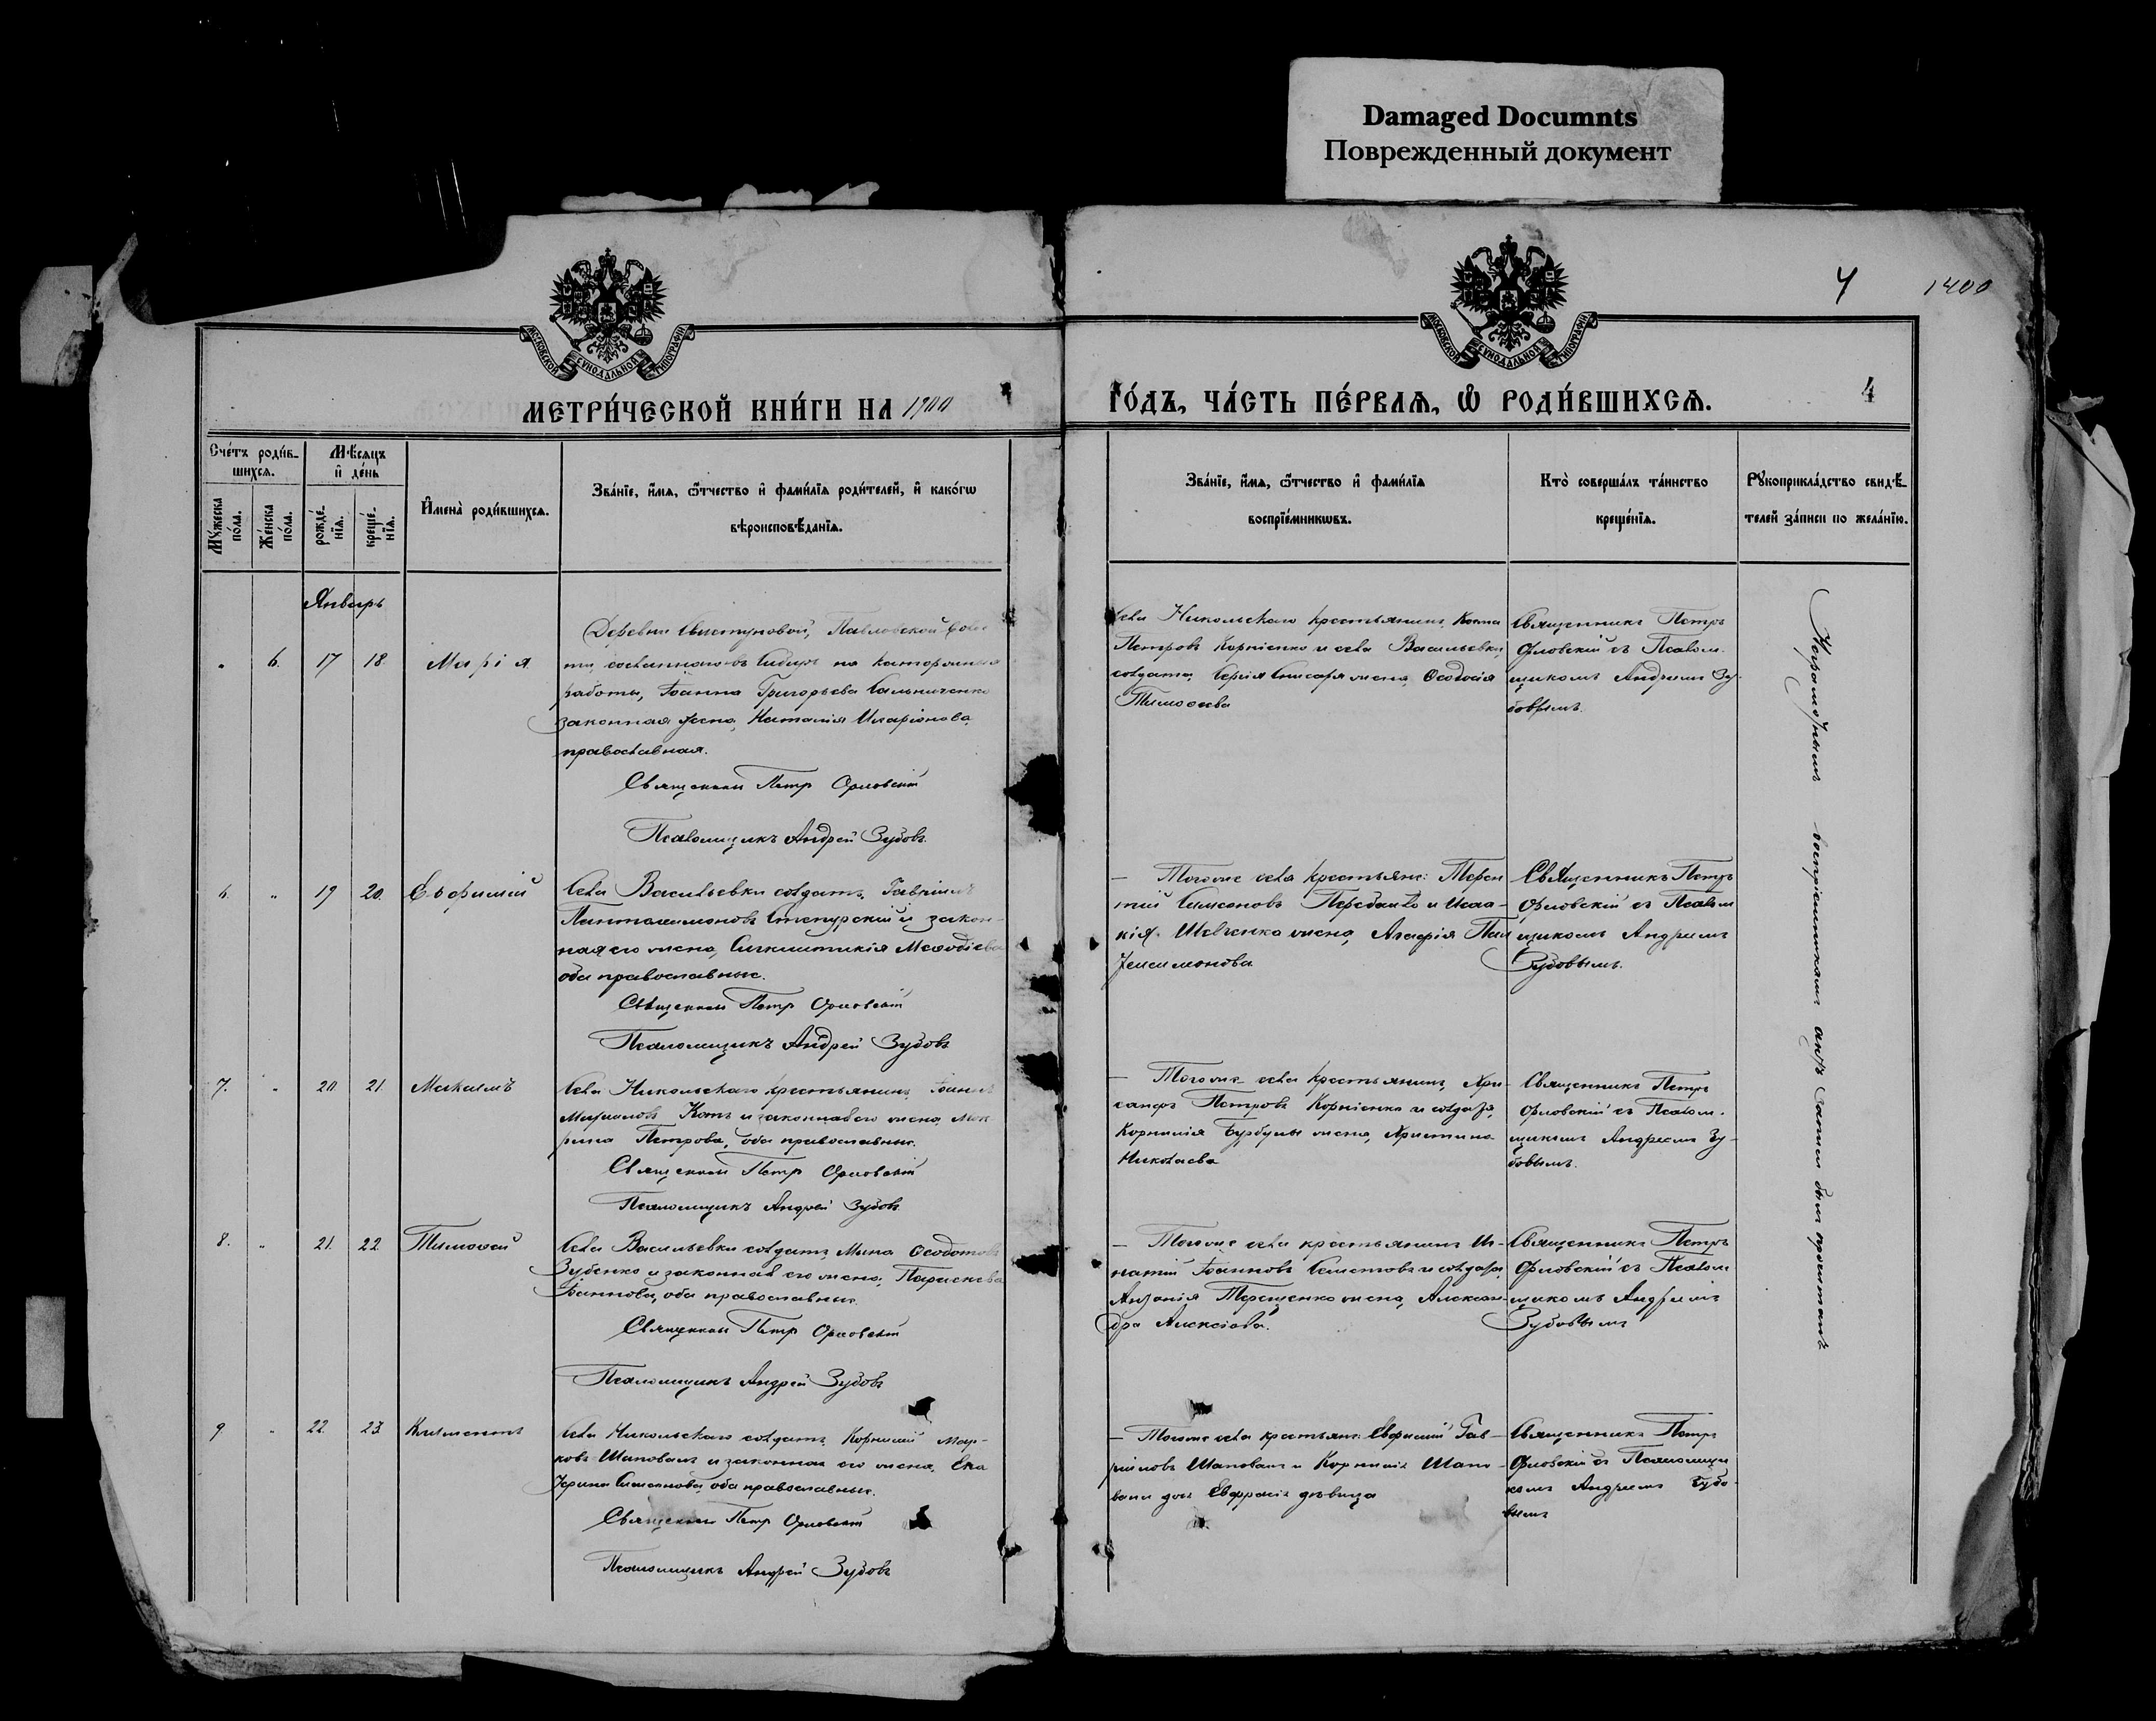 Damaged Documnts
Поврежденный документ
МОСКОВСКОЙ СУНОДАЛЬНОЙ ТИПОГРАФІИ
МОСКОВСКОЙ СУНОДАЛЬНОЙ ТИПОГРАФІИ
4
1400
МЕТРИ́ЧЕСКОЙ КНИ́ГИ НА 1900
ГО́ДЪ, ЧА́СТЬ ПЕ́РВАЯ, Ѡ РОДИ́ВШИХСЯ.
4
Сче́тъ роди́в-
шихся.
Му́жеска
по́ла.
Же́нска
по́ла.
Мѣ́сяцъ
и де́нь
рожде́-
нія.
креще́-
нія.
Имена̀ роди́вшихся.
Зва́ніе, и́мя, ѿтчество и фами́лія роди́телей, и како́гѡ
вѣроисповѣ́данія.
Зва́ніе, и́мя, ѿтчество и фами́лія
воспріе́мникѡвъ.
Кто̀ соверша́лъ та́инство
креще́нія.
Рꙋкоприкла́дство свидѣ́-
телей за́писи по жела́нію.
Январь
" 6. 17 18. Марія
Деревни Свистуновой, Павловской волос
ти сосланнаго въ Сибирь на каторжныя
работы, Іоанна Григорьева Сальниченко
законная жена, Наталія Иларіонова,
православная.
Священник Петр Орловскій
Псаломщикъ Андрей Зубовъ.
Села Никольскаго крестьянинъ, Козма
Петровъ Корніенко и села Васильевки,
солдата, Сергія жена, Ѳеодосія
Тимоѳеева
Священникъ Петръ
Орловскій съ Псалом-
щикомъ Андреемъ Зу-
бовымъ.
6. " 19 20. Евфимій
Села Васильевки солдатъ, Гавріилъ
Пантелимоновъ и закон-
ная его жена, Синклитикія Меѳодіева
оба православные.
Священник Петр Орловскій
Псаломщикъ Андрей Зубовъ
— Тогоже села крестьяне: Терен
тій Симеоновъ и Исаа-
кія Шевченко жена, Агафія Пан
телеимонова.
Священникъ Петръ
Орловскій съ Псалом
щикомъ Андреемъ
Зубовымъ.
7. " 20 21. Максимъ
Села Никольскаго крестьянинъ Іоаннъ
Михаиловъ Котъ и законная его жена, Мок
рина Петрова, оба православные.
Священник Петр Орловскій
Псаломщикъ Андрей Зубовъ
— Тогоже села крестьянинъ, Хри-
санфъ Петровъ Корніенко и солдата,
Корнилія Бурбулы жена, Христина
Николаева
Священникъ Петръ
Орловскій съ Псалом-
щикомъ Андреемъ Зу-
бовымъ.
8. " 21. 22. Тимоѳей
Села Васильевки солдатъ, Мина Ѳеодотовъ
Зубенко и законная его жена, Параскева
Іоаннова, оба православные.
Священник Петр Орловскій
Псаломщикъ Андрей Зубовъ
— Тогоже села крестьянинъ Иг-
натій Іоанновъ и солдата,
Антонія Терещенко жена, Алексан-
дра Алексіева.
Священникъ Петръ
Орловскій съ Псалом
щикомъ Андреемъ
Зубовымъ
9 " 22. 23. Климентъ
Села Никольскаго солдатъ, Корнилій Мар-
ковъ Шаповалъ и законная его жена, Ека
терина Симеонова, оба православные.
Священник Петр Орловскій
Псаломщикъ Андрей Зубовъ
— Тогоже села крестьяне: Евфимій Гав-
ріиловъ Шаповалъ и Корнилія Шапо-
вала дочь Евфрасія девица
Священникъ Петръ
Орловскій съ Псаломщи
комъ Андреемъ Зубо-
вымъ
Неграмотнымъ воспріемникамъ актъ сей былъ прочитанъ